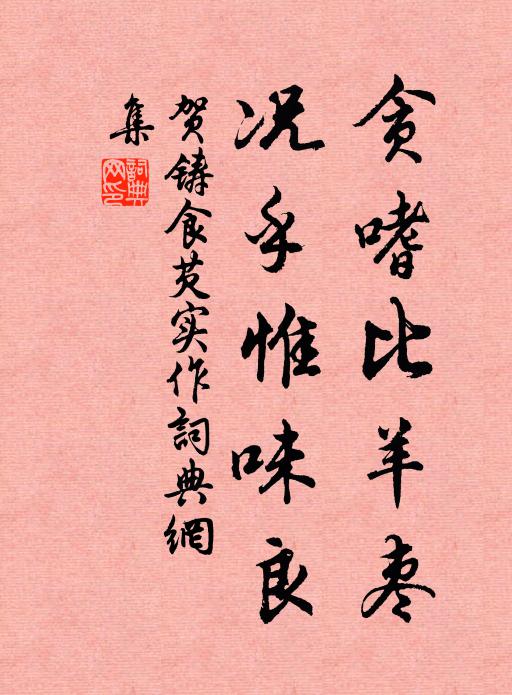 贪嗜比羊枣
况乎惟味良
贺铸食芡实作詞典網
集
詞典网印